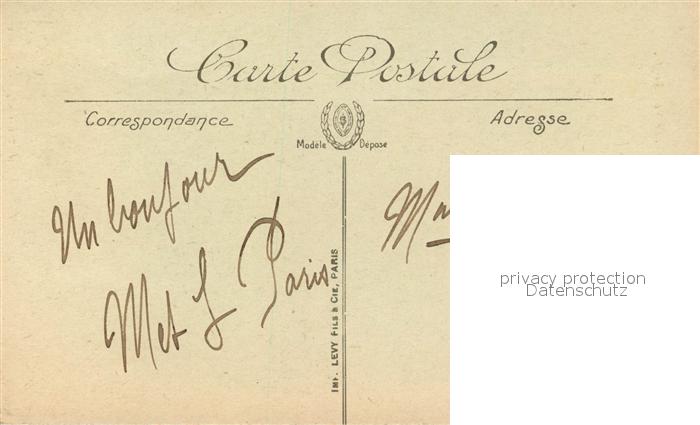 Carte Postale
Correspondance
Adresse
Modèle Déposé
Un bonjour
M et L Paris
IMP. LEVY FILS & CIE, PARIS
privacy protection
Datenschutz